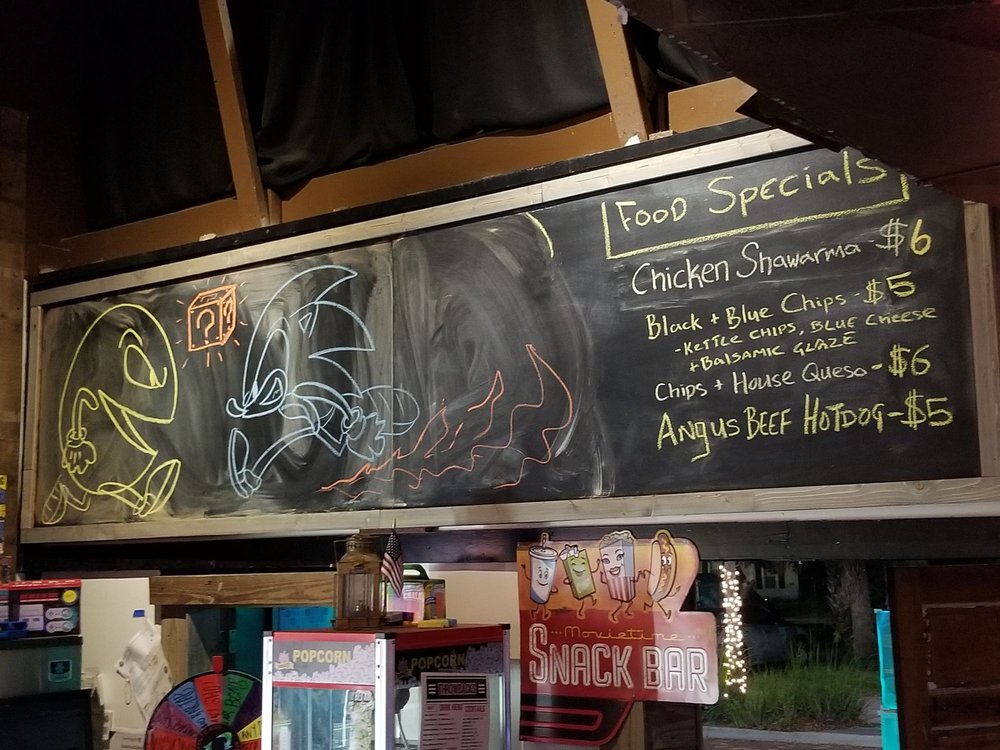 Food Specials
Chicken Shawarma $6
Black + Blue Chips - $5
- Kettle Chips, Blue Cheese
+ Balsamic Glaze
Chips + House Queso - $6
Angus Beef Hotdog - $5
?
Movietime
SNACK BAR
POPCORN
POPCORN
THROWBACKS
DRINK MENU
COCKTAILS